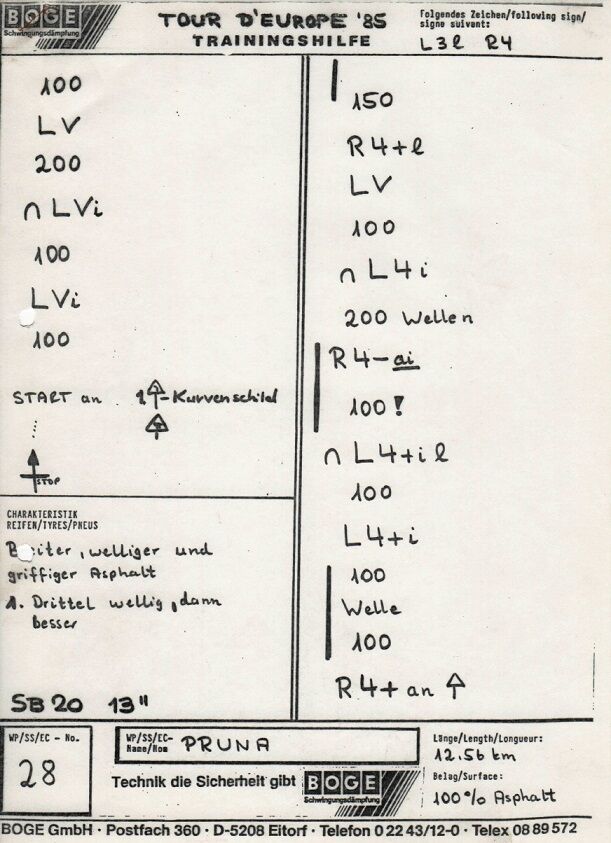 BOGE
Schwingungsdämpfung
TOUR D'EUROPE '85
TRAININGSHILFE
Folgendes Zeichen/following sign/
signe suivant:
L3l R4
100
LV
200
∩ LVi
100
LVi
100
START an -Kurvenschild
STOP
CHARAKTERISTIK
REIFEN/TYRES/PNEUS
Breiter, welliger und
griffiger Asphalt
1. Drittel wellig, dann
besser
SB20 13"
150
R4+l
LV
100
∩ L4i
200 Wellen
R4-ai
100!
∩ L4+il
100
L4+i
100
Welle
100
R4+ an ↑
WP/SS/EC - No.
28
WP/SS/EC-
Name/Nom PRUNA
Technik die Sicherheit gibt BOGE
Schwingungsdämpfung
Länge/Length/Longueur:
12.56 km
Belag/Surface:
100% Asphalt
BOGE GmbH · Postfach 360 · D-5208 Eitorf · Telefon 0 22 43/12-0 · Telex 08 89 572